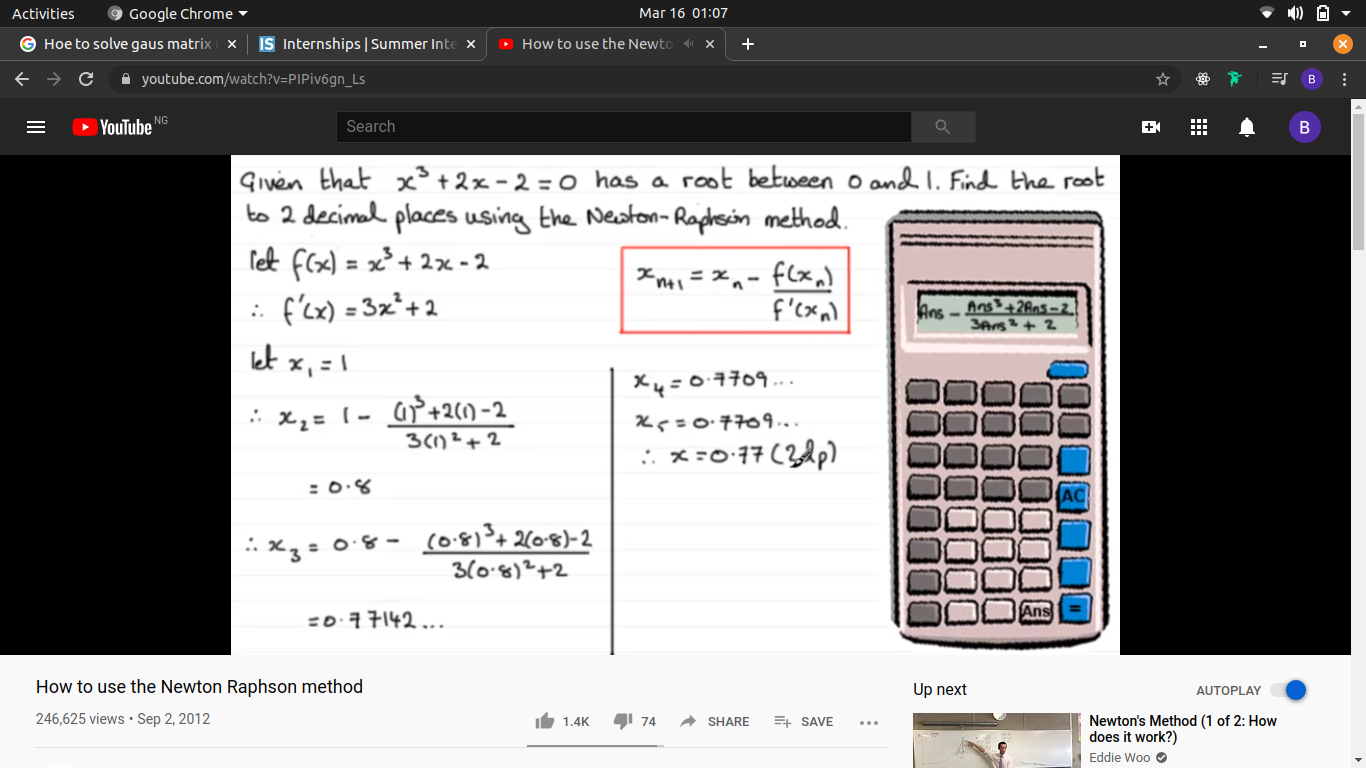 Activities
Google Chrome
Mar 16 01:07
Hoe to solve gaus matrix
Internships | Summer Inte
How to use the Newto
youtube.com/watch?v=PIPiv6gn_Ls
B
YouTube NG
Search
B
Given that x³ + 2x - 2 = 0 has a root between 0 and 1. Find the root
to 2 decimal places using the Newton-Raphson method.
let f(x) = x³ + 2x - 2
∴ f'(x) = 3x² + 2
xₙ₊₁ = xₙ - f(xₙ) / f'(xₙ)
Ans - Ans³ + 2Ans - 2 / 3Ans² + 2
let x₁ = 1
∴ x₂ = 1 - (1)³ + 2(1) - 2 / 3(1)² + 2
= 0.8
∴ x₃ = 0.8 - (0.8)³ + 2(0.8) - 2 / 3(0.8)² + 2
= 0.77142...
x₄ = 0.7709...
x₅ = 0.7709...
∴ x = 0.77 (2dp)
AC
Ans
=
How to use the Newton Raphson method
246,625 views • Sep 2, 2012
1.4K
74
SHARE
SAVE
Up next
AUTOPLAY
Newton's Method (1 of 2: How
does it work?)
Eddie Woo